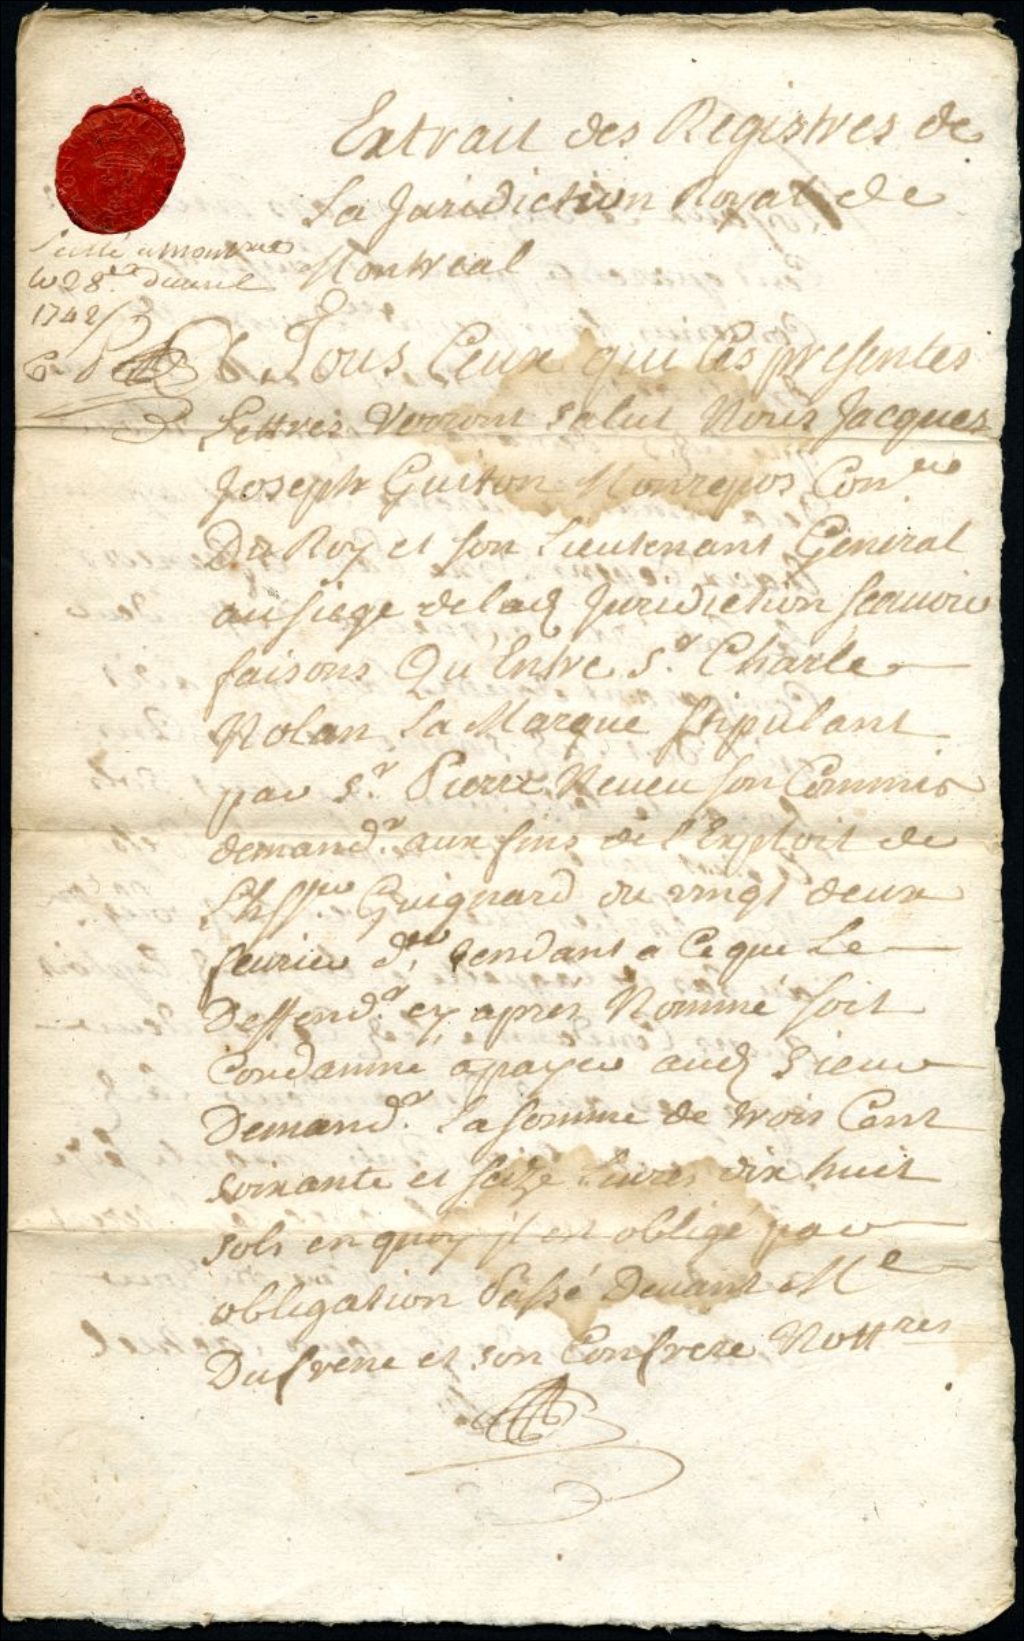 Extrait des Registres de
La Juridiction Royal de
Montreal
Scellé a Montreal
le 28e. d'avril
1742
A Tous Ceux qui Ces presentes
Lettres Verront Salut Nous Jacques
Joseph Guiton Monrepos Con.er
Du Roy et son Lieutenant General
au siege de lad Juridiction scavoir
faisons Qu'Entre S.r Charle
Nolan La Marque stipulant
par S.r Pierre Neveu son Commis
demand.r aux fins de l'Exploit de
L'huissier Guignard du vingt deux
fevrier d.er tendant a Ce que Le
Deffend.r cy apres Nommé soit
Condamné a payer aud Sieur
Demand.r La somme de trois Cent
soixante et seize Livres dix huit
sols en quoy il est obligé par
obligation Passé Devant M.e
Dufrene et son Confrere Nott.res